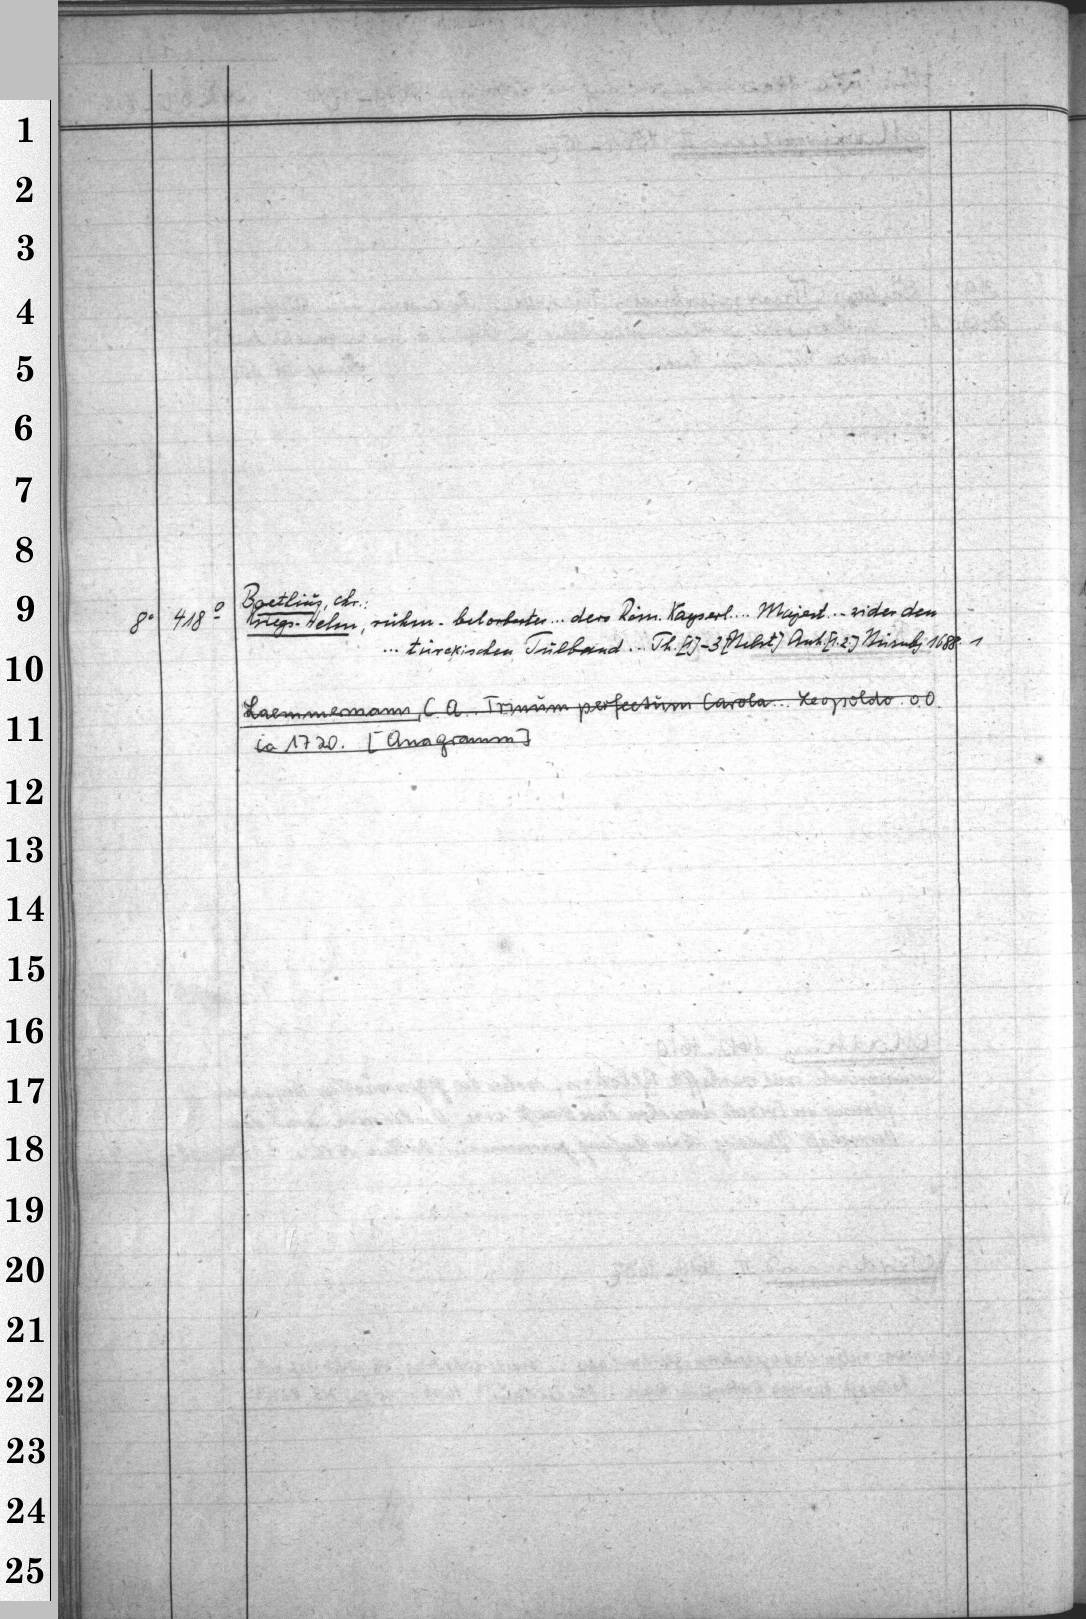 1
2
3
4
5
6
7
8
Boethius, Chr.:
9 8° 418° Kriegs-Helm, rühm-belorbertes... dero Röm. Kayserl.... Majest... wider den
... türckischen Tülband... Th.[1]-3 [Nebst] Anh.[1.2.] Nürnbg 1688. 1
10
Laemmermann, C A.. Trinum perfectum Carola... Leopoldo. o O.
11
ca 1720. [Anagramm]
12
13
14
15
16
17
18
19
20
21
22
23
24
25